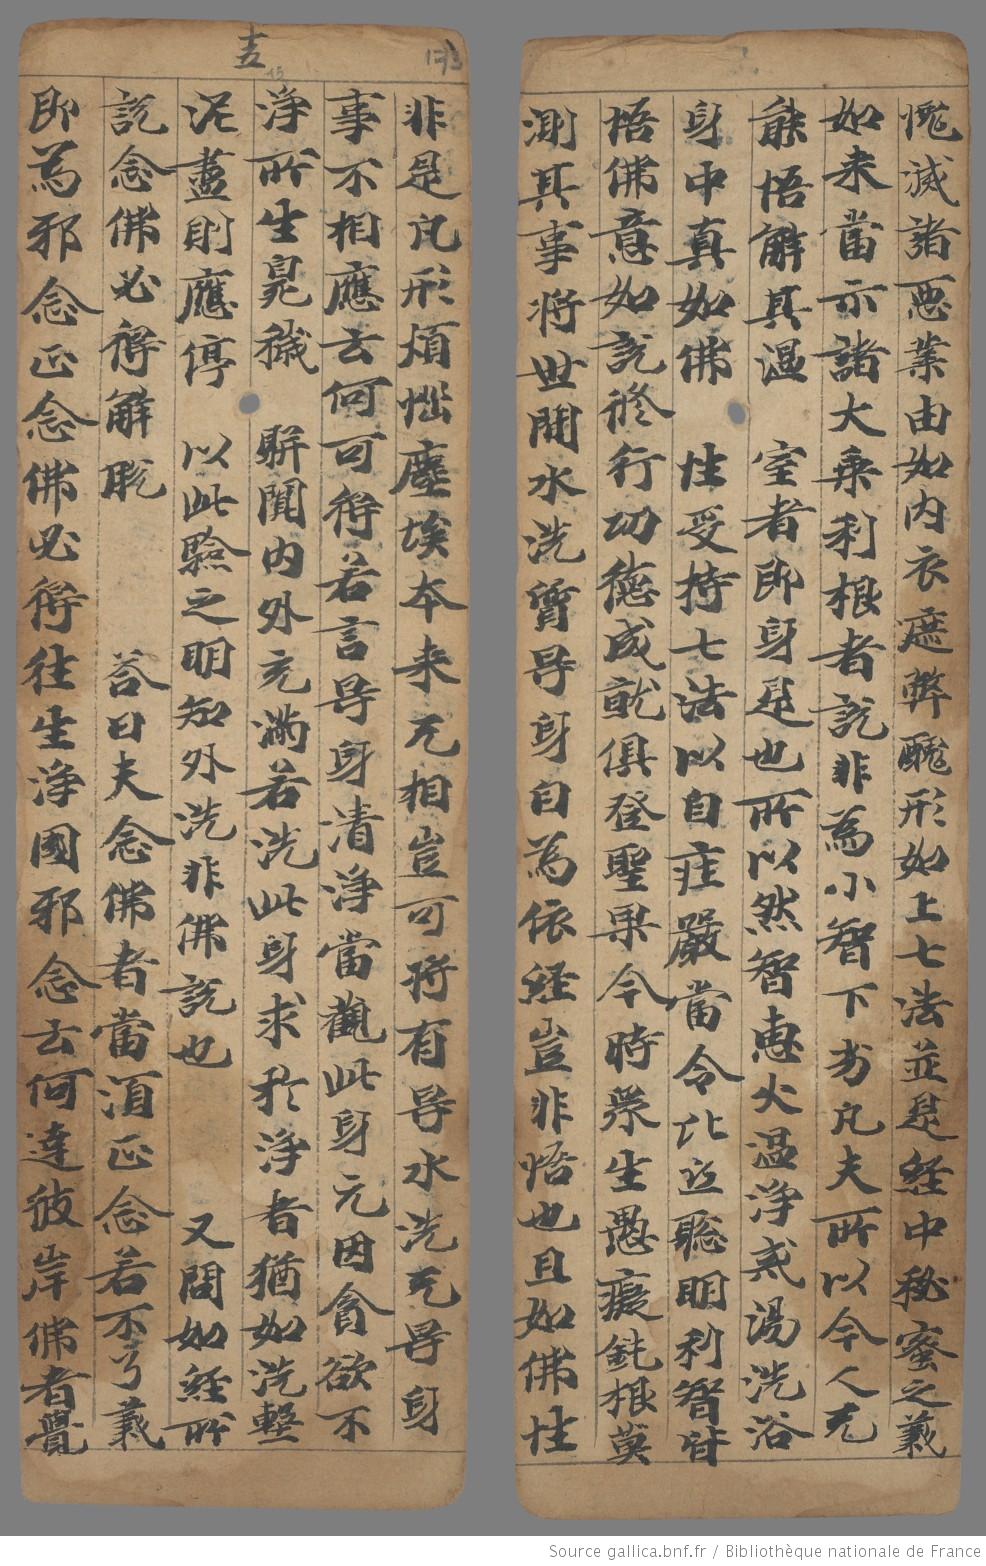 愧滅諸惡業由如内衣遮弊醜形如上七法並是経中秘蜜之義
如来當示諸大乗利根者説非為小智下劣凡夫所以今人无
能悟解其温 室者即身是也所以然智惠火温浄戒湯洗浴
身中真如佛 性受持七法以自庄嚴當令比丘聡明利智皆
悟佛意如説修行功德成就俱登聖果今時衆生愚癡鈍根莫
測其事将世間水洗質导身自為依経豈非悟也且如佛性
非是凡形煩惱塵埃本来无相豈可将有导水洗无导身
事不相應云何可得若言导身清浄當觀此身元因貪欲不
浄所生臭穢 駢闐内外充滿若洗此身求於浄者猶如洗壍
泥盡則應停 以此驗之明知外洗非佛説也 又問如経所
説念佛必得解脱 荅曰夫念佛者當須正念若不了義
即為邪念正念佛必得往生浄國邪念云何達彼岸佛者覺
十五
15
Source gallica.bnf.fr / Bibliothèque nationale de France